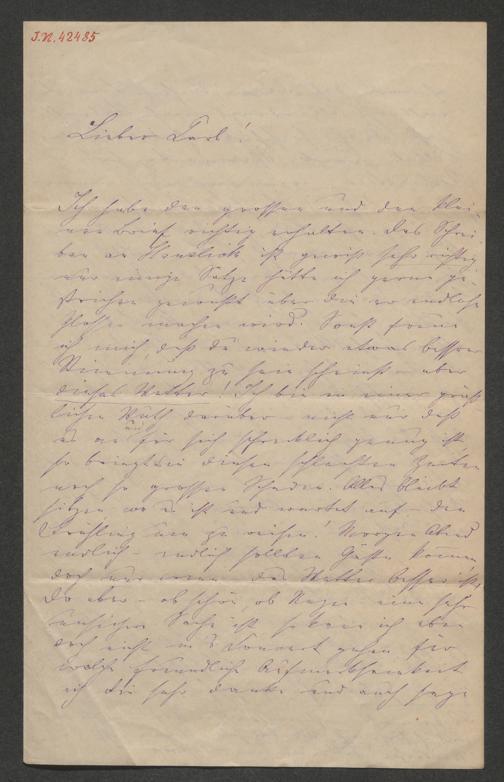 J.N. 42485
Lieber Carl!
Ich habe den grossen und den klei-
nen Brief richtig erhalten. Das Schrei-
ben an Hanslick ist gewiss sehr richtig
nur einige Sätze hätte ich gerne ge-
strichen gewusst über die er endlose
machen wird. Sonst freue
ich mich, daß du wieder etwas besserer
Stimmung zu sein scheinst – aber
dieses Wetter! Ich bin in einer gräss-
lichen Wuth darüber – nicht nur daß
es an und für sich schrecklich genug ist
so bringt es in diesen schlechten Zeiten
noch so grossen Schaden. Alles bleibt
sitzen wo es ist und wartet auf den
Frühling um zu reisen! Morgen Abend
endlich – endlich sollten Gäste kommen
doch nur wenn das Wetter besser ist,
da aber – ob schön, ob Regen eine sehr
unsichere Sache ist so kann ich eben
doch nicht in's Concert gehen für
welche freundliche Aufmerksamkeit
ich dir sehr danke und auch sage